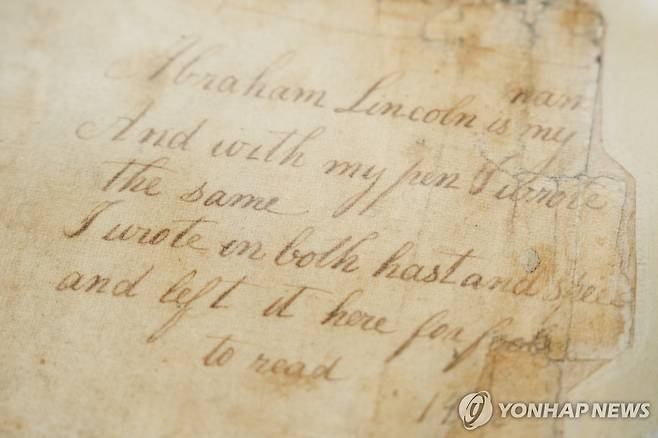 nan
Abraham Lincoln is my
And with my pen I wrote
the same
I wrote in both hast and speed
and left it here for fools
to read
YONHAP NEWS